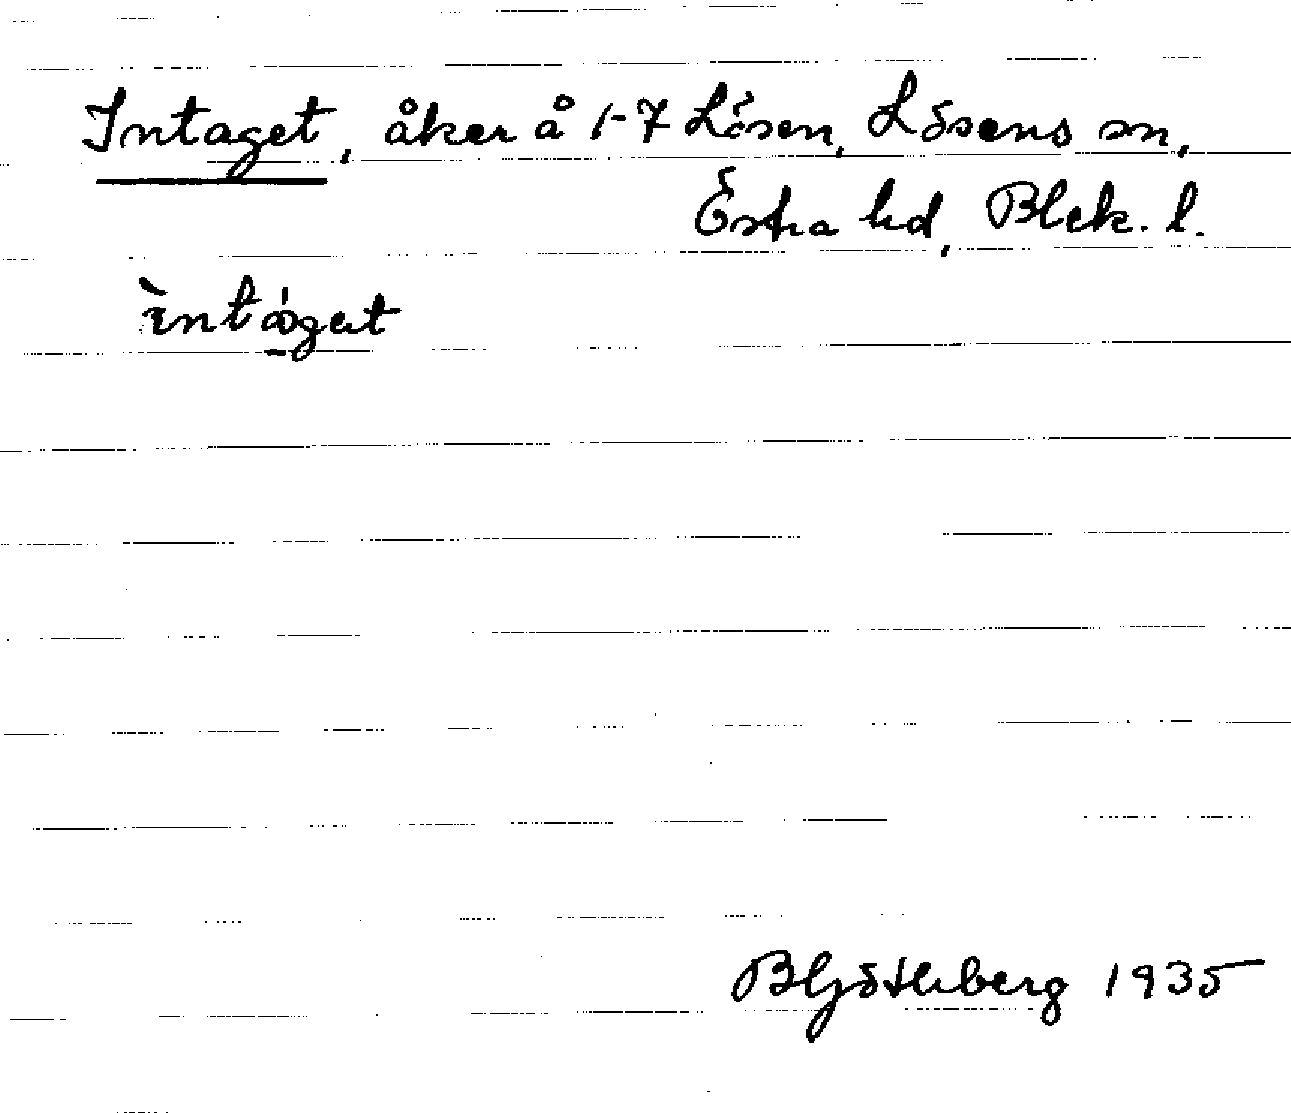 Intaget, åker å 1-7 Lösen, Lösens sn,
Östra hd, Blek. l.
ìntáget
BGötlberg 1935